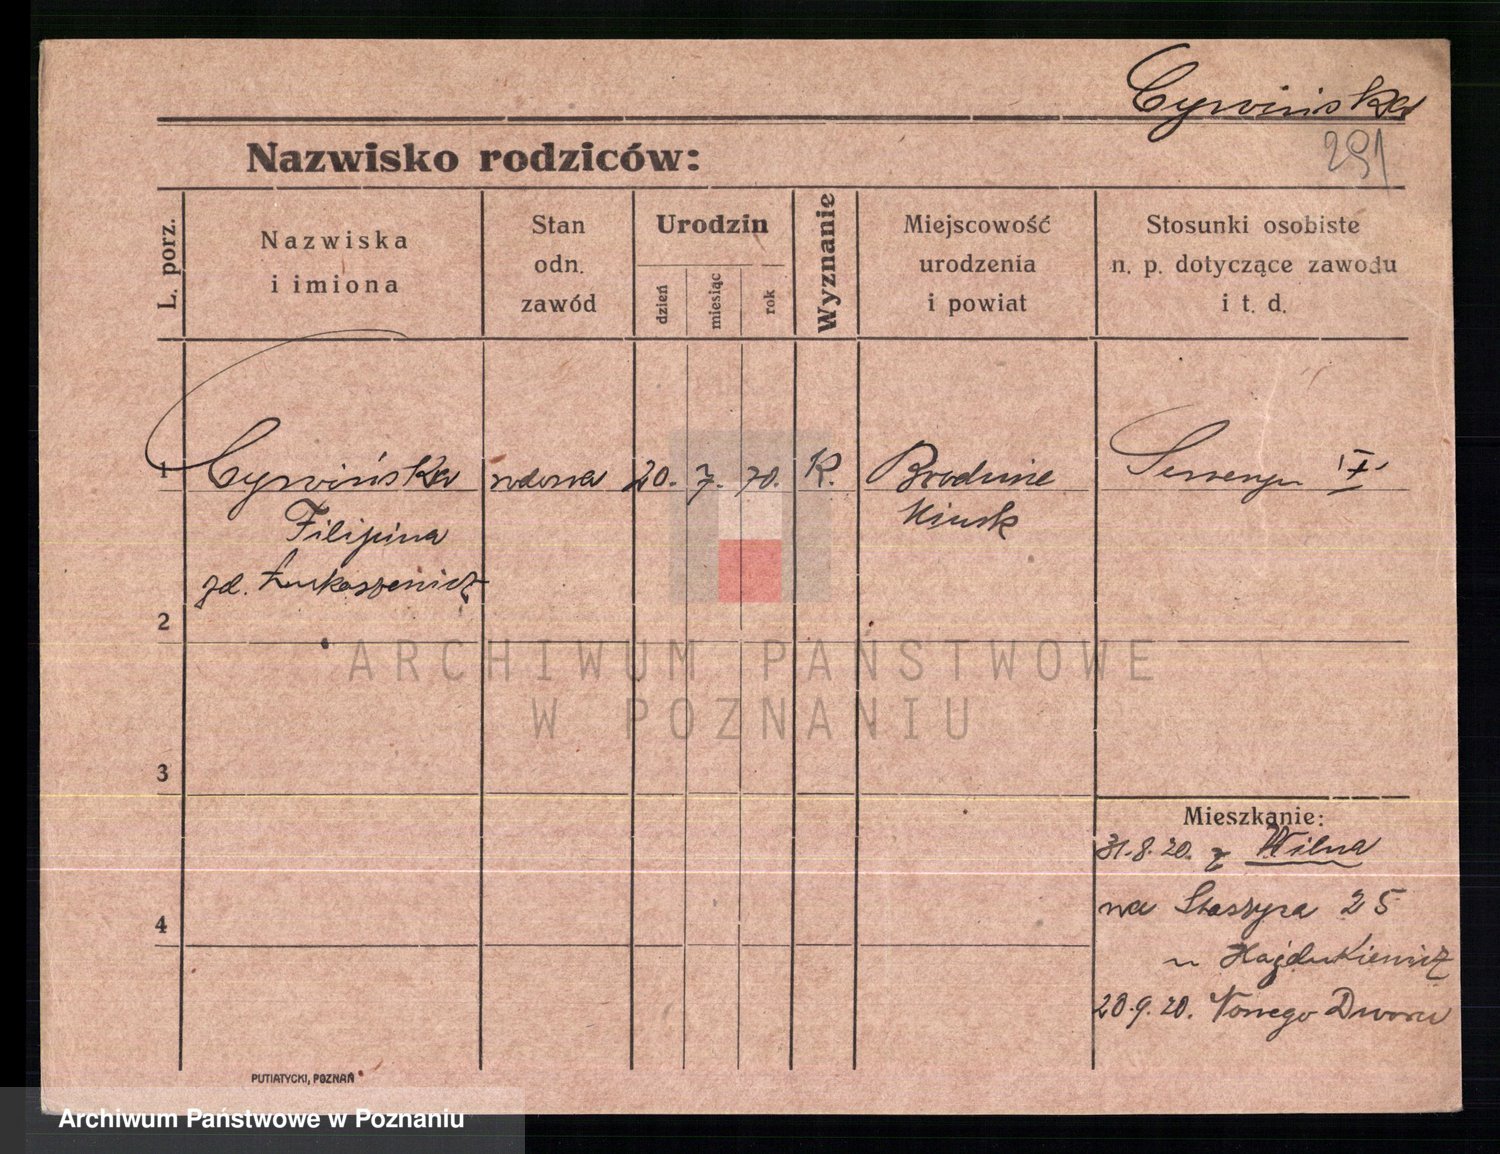 Cywińska
291
Nazwisko rodziców:
L. porz.
Nazwiska
i imiona
Stan
odn.
zawód
Urodzin
dzień
miesiąc
rok
Wyznanie
Miejscowość
urodzenia
i powiat
Stosunki osobiste
n. p. dotyczące zawodu
i t. d.
1 Cywińska wdowa 20. 7. 70. K.
Mińsk
Filipina
zd. Łukaszewicz
2
3
4
Mieszkanie:
31.8.20. z Wilna
na Staszyca 25
u Hajdukiewicz
20.9.20. Nowego Dworu
PUTIATYCKI, POZNAŃ
ARCHIWUM PAŃSTWOWE
W POZNANIU
Archiwum Państwowe w Poznaniu